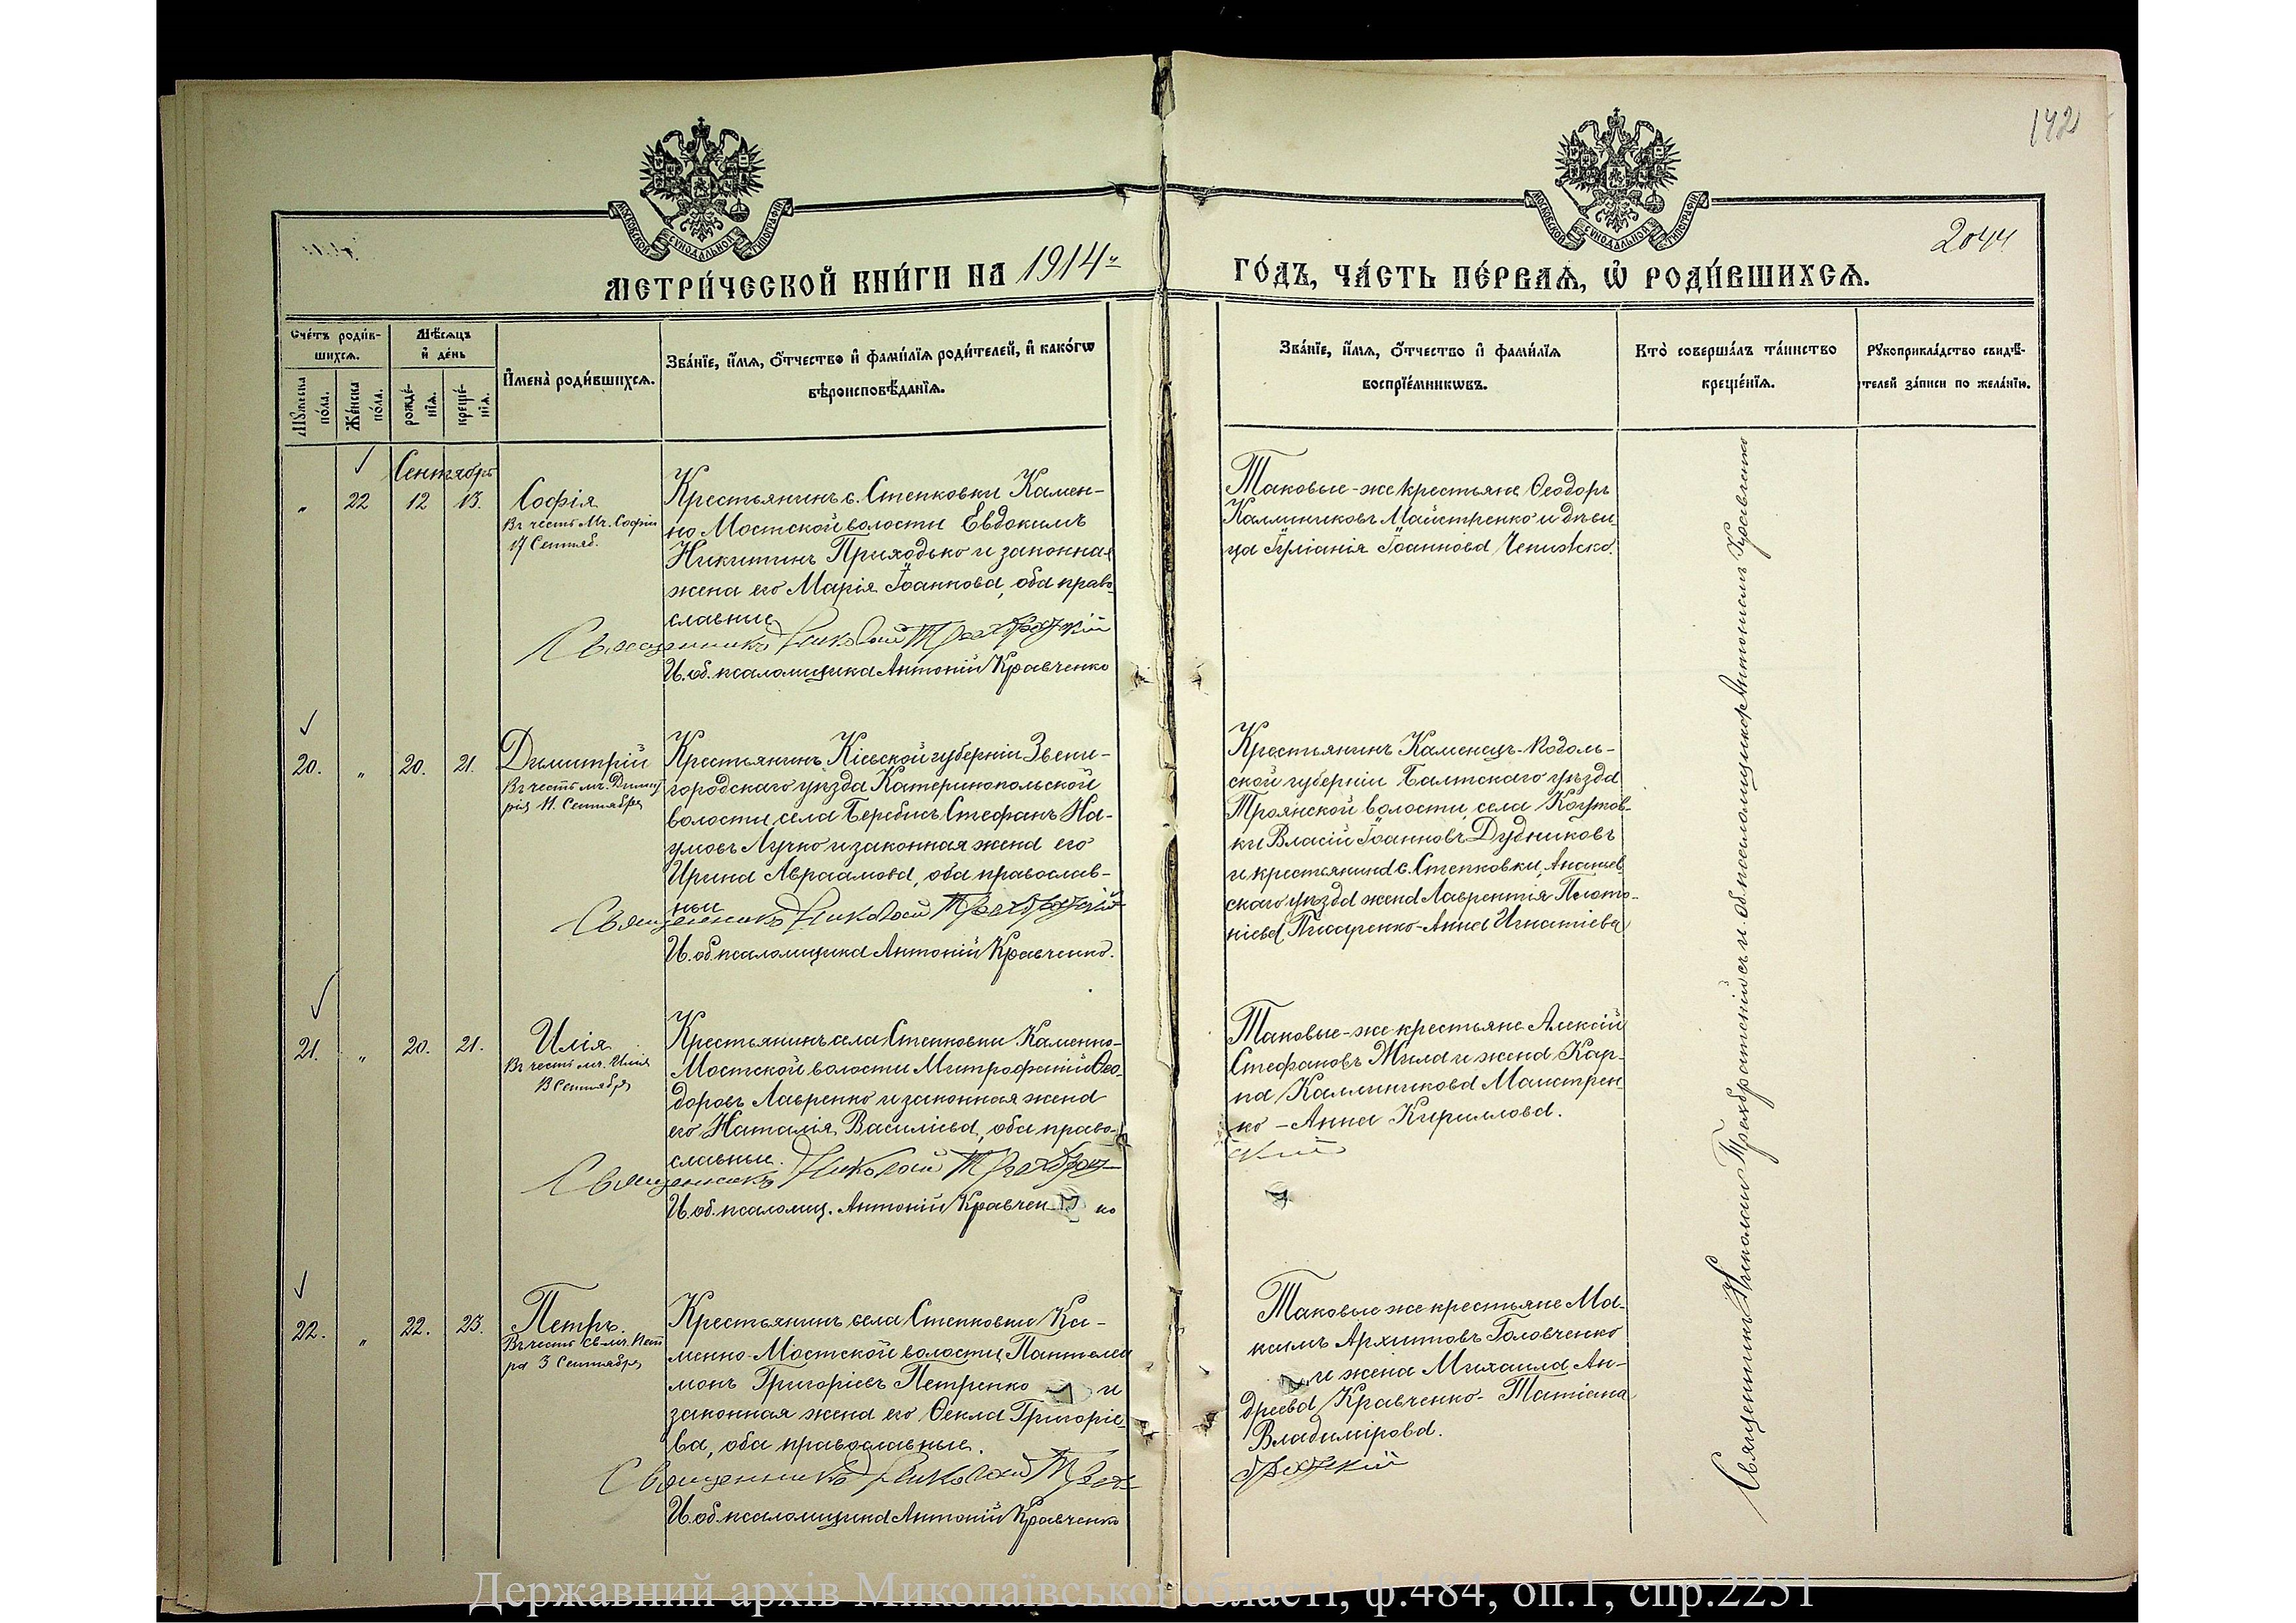 142
2044
МОСКОВСКОЙ СѴНОДАЛЬНОЙ ТИПОГРАФІИ
МОСКОВСКОЙ СѴНОДАЛЬНОЙ ТИПОГРАФІИ
МЕТРИ́ЧЕСКОЙ КНИ́ГИ НА 1914й
ГО́ДЪ, ЧА́СТЬ ПЕ́РВАѦ, Ѽ РОДИ́ВШИХСѦ.
Сче́тъ роди́в-
шихсѧ.
Мѣ́сѧцъ
и҆ де́нь
Мꙋ́жеска
по́ла.
Же́нска
по́ла.
рожде́-
нїѧ.
креще́-
нїѧ.
И҆мена̀ роди́вшихсѧ.
Зва́нїе, и҆́мѧ, ѻ҆́тчество и҆ фами́лїѧ роди́телей, и҆ како́гѡ
вѣроисповѣ́данїѧ.
Зва́нїе, и҆́мѧ, ѻ҆́тчество и҆ фами́лїѧ
воспрїе́мникѡвъ.
Кто̀ соверша́лъ та́инство
креще́нїѧ.
Рꙋкоприкла́дство свидѣ́-
телей за́писи по жела́нїю.
Сентябрь
" 22 12 13. Софія
Въ честь Мч. Софіи
17 Сентяб.
Крестьянинъ с. Степковки Камен-
но Мостской волости Евдокимъ
Никитинъ Приходько и законная
жена его Марія Іоаннова, оба право-
славные
Священникъ Николай Трехбратскій
И. об. псаломщика Антоній Кравченко
Таковые-же крестьяне Ѳеодоръ
Каллиниковъ Майстренко и дѣви-
ца Іуліанія Іоаннова
20. " 20. 21. Димитрій
Въ честь мч. Димит
рія 11. Сентября
Крестьянинъ Кіевской губерніи Звени-
городскаго уѣзда Катеринопольской
волости, села Стефанъ На-
умовъ Лучко и законная жена его
Ирина Авраамова, оба православ-
ные
Священникъ Николай Трехбратскій
И. об. псаломщика Антоній Кравченко.
Крестьянинъ Каменецъ-Подоль-
ской губерніи Балтскаго уѣзда
Троянской волости, села Когутов-
ки Власій Іоанновъ Дудниковъ
и крестьянина с. Степковки, Ананьев
скаго уѣзда жена Лаврентія Плато-
ніева Писаренко-Анна Игнатіева
21. " 20. 21. Илія
Въ честь мч. Иліи
13 Сентября
Крестьянинъ села Степковки Каменно-
Мостской волости Митрофаній Ѳео-
доровъ Лавренко и законная жена
его Наталія Василіева, оба право-
славные.
Священникъ Николай Трехбрат-
И. об. псаломщ. Антоній Кравчен ко
Таковые-же крестьяне Алексій
Стефановъ Жила и жена Кар-
па Каллиникова Маистрен-
ко - Анна Кириллова.
скій
22. " 22. 23. Петръ.
Въ честь св. мч. Пет
ра 3 Сентября
Крестьянинъ села Степковки Ка-
менно-Мостской волости, Пантелеи
монъ Григоріевъ Петренко и
законная жена его Ѳекла Григоріе-
ва, оба православные.
Священникъ Николай Трех-
И. об. псаломщика Антоній Кравченко
Таковые же крестьяне Ма-
ксимъ Архиповъ Головченко
и жена Михаила Ан-
дреева Кравченко- Татіана
Владимірова.
братскій
Священникъ Николай Трехбратскій съ и. об. псаломщика Антоніемъ Кравченко
Державний архів Миколаївської області, ф.484, оп.1, спр.2251